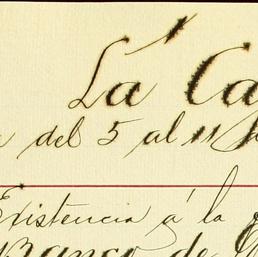 La Ca
del 5 al 11
Existencia á la
Banco de